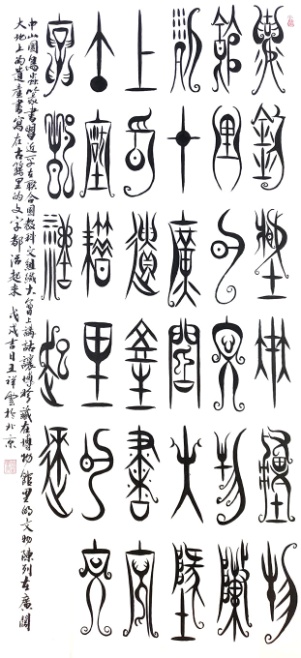 讓收藏在博物
館里的文物陳
列在廣闊大地
上的遺產書寫
在古籍里的文
字都活起來
中山國鳥蟲篆書習近平在聯合國教科文組織大會上講話讓藏在博物館里的文物陳列在廣闊
大地上的遺產書寫在古籍里的文字都活起來 戊戌日王祥雲於北京